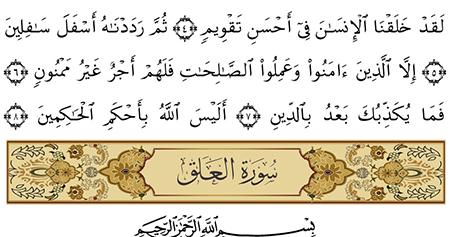 لَقَدْ خَلَقْنَا ٱلْإِنسَٰنَ فِىٓ أَحْسَنِ تَقْوِيمٍ ﴿٤﴾ ثُمَّ رَدَدْنَٰهُ أَسْفَلَ سَٰفِلِينَ
﴿٥﴾ إِلَّا ٱلَّذِينَ ءَامَنُوا۟ وَعَمِلُوا۟ ٱلصَّٰلِحَٰتِ فَلَهُمْ أَجْرٌ غَيْرُ مَمْنُونٍ ﴿٦﴾
فَمَا يُكَذِّبُكَ بَعْدُ بِٱلدِّينِ ﴿٧﴾ أَلَيْسَ ٱللَّهُ بِأَحْكَمِ ٱلْحَٰكِمِينَ ﴿٨﴾
سُورَةُ العَلَقِ
بِسْمِ ٱللَّهِ ٱلرَّحْمَٰنِ ٱلرَّحِيمِ